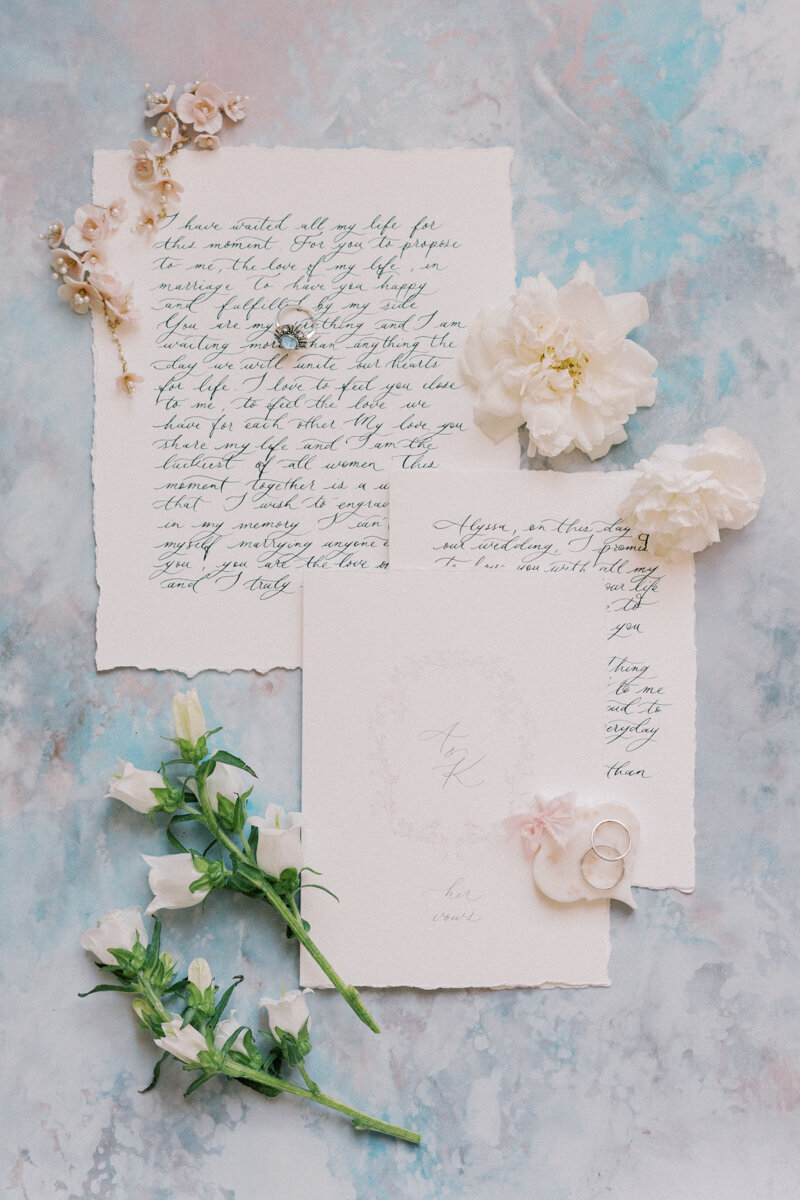 I have waited all my life for
this moment. For you to propose
to me, the love of my life, in
marriage. To have you happy
and fulfilled by my side
You are my and I am
waiting than anything the
day we will unite our hearts
for life. I love to feel you close
to me, to feel the love we
have for each other. My love, you
share my life and I am the
luckiest of all women. This
moment together is a
that I wish to engrav
in my memory. I can
myself marrying anyone
you, you are the love
and I truly
Alyssa, on this day
our wedding, I promis
you with all my
our life
to
you
thing
to me
to
everyday
than
A & K
her
vows